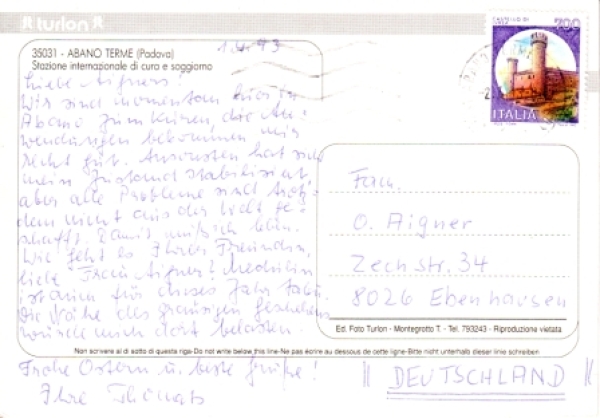 turlon
35031 - ABANO TERME (Padova)
Stazione internazionale di cura e soggiorno
CASTELLO DI IVREA
700
ITALIA
Liebe Aigners!
Wir sind momentan hier in
Abano zum Kuren. die An-
wendungen bekommen mir
recht gut. Ansonsten hat sich
mein Zustand stabilisiert,
aber alle Probleme sind trotz-
dem nicht aus der Welt ge-
schafft. Damit muß ich leben.
Wie geht es Ihrer Freundin,
liebe Frau Aigner?
ist auch für dieses Jahr tabu.
Die Nähe des grausigen Geschehens
würde mich dort belasten.
Frohe Ostern u. beste Grüße!
Ihre
Fam.
O. Aigner
Zechstr. 34
8026 Ebenhausen
|| DEUTSCHLAND ||
Ed. Foto Turlon - Montegrotto T. - Tel. 793243 - Riproduzione vietata
Non scrivere al di sotto di questa riga-Do not write below this line-Ne pas écrire au dessous de cette ligne-Bitte nicht unterhalb dieser linie schreiben